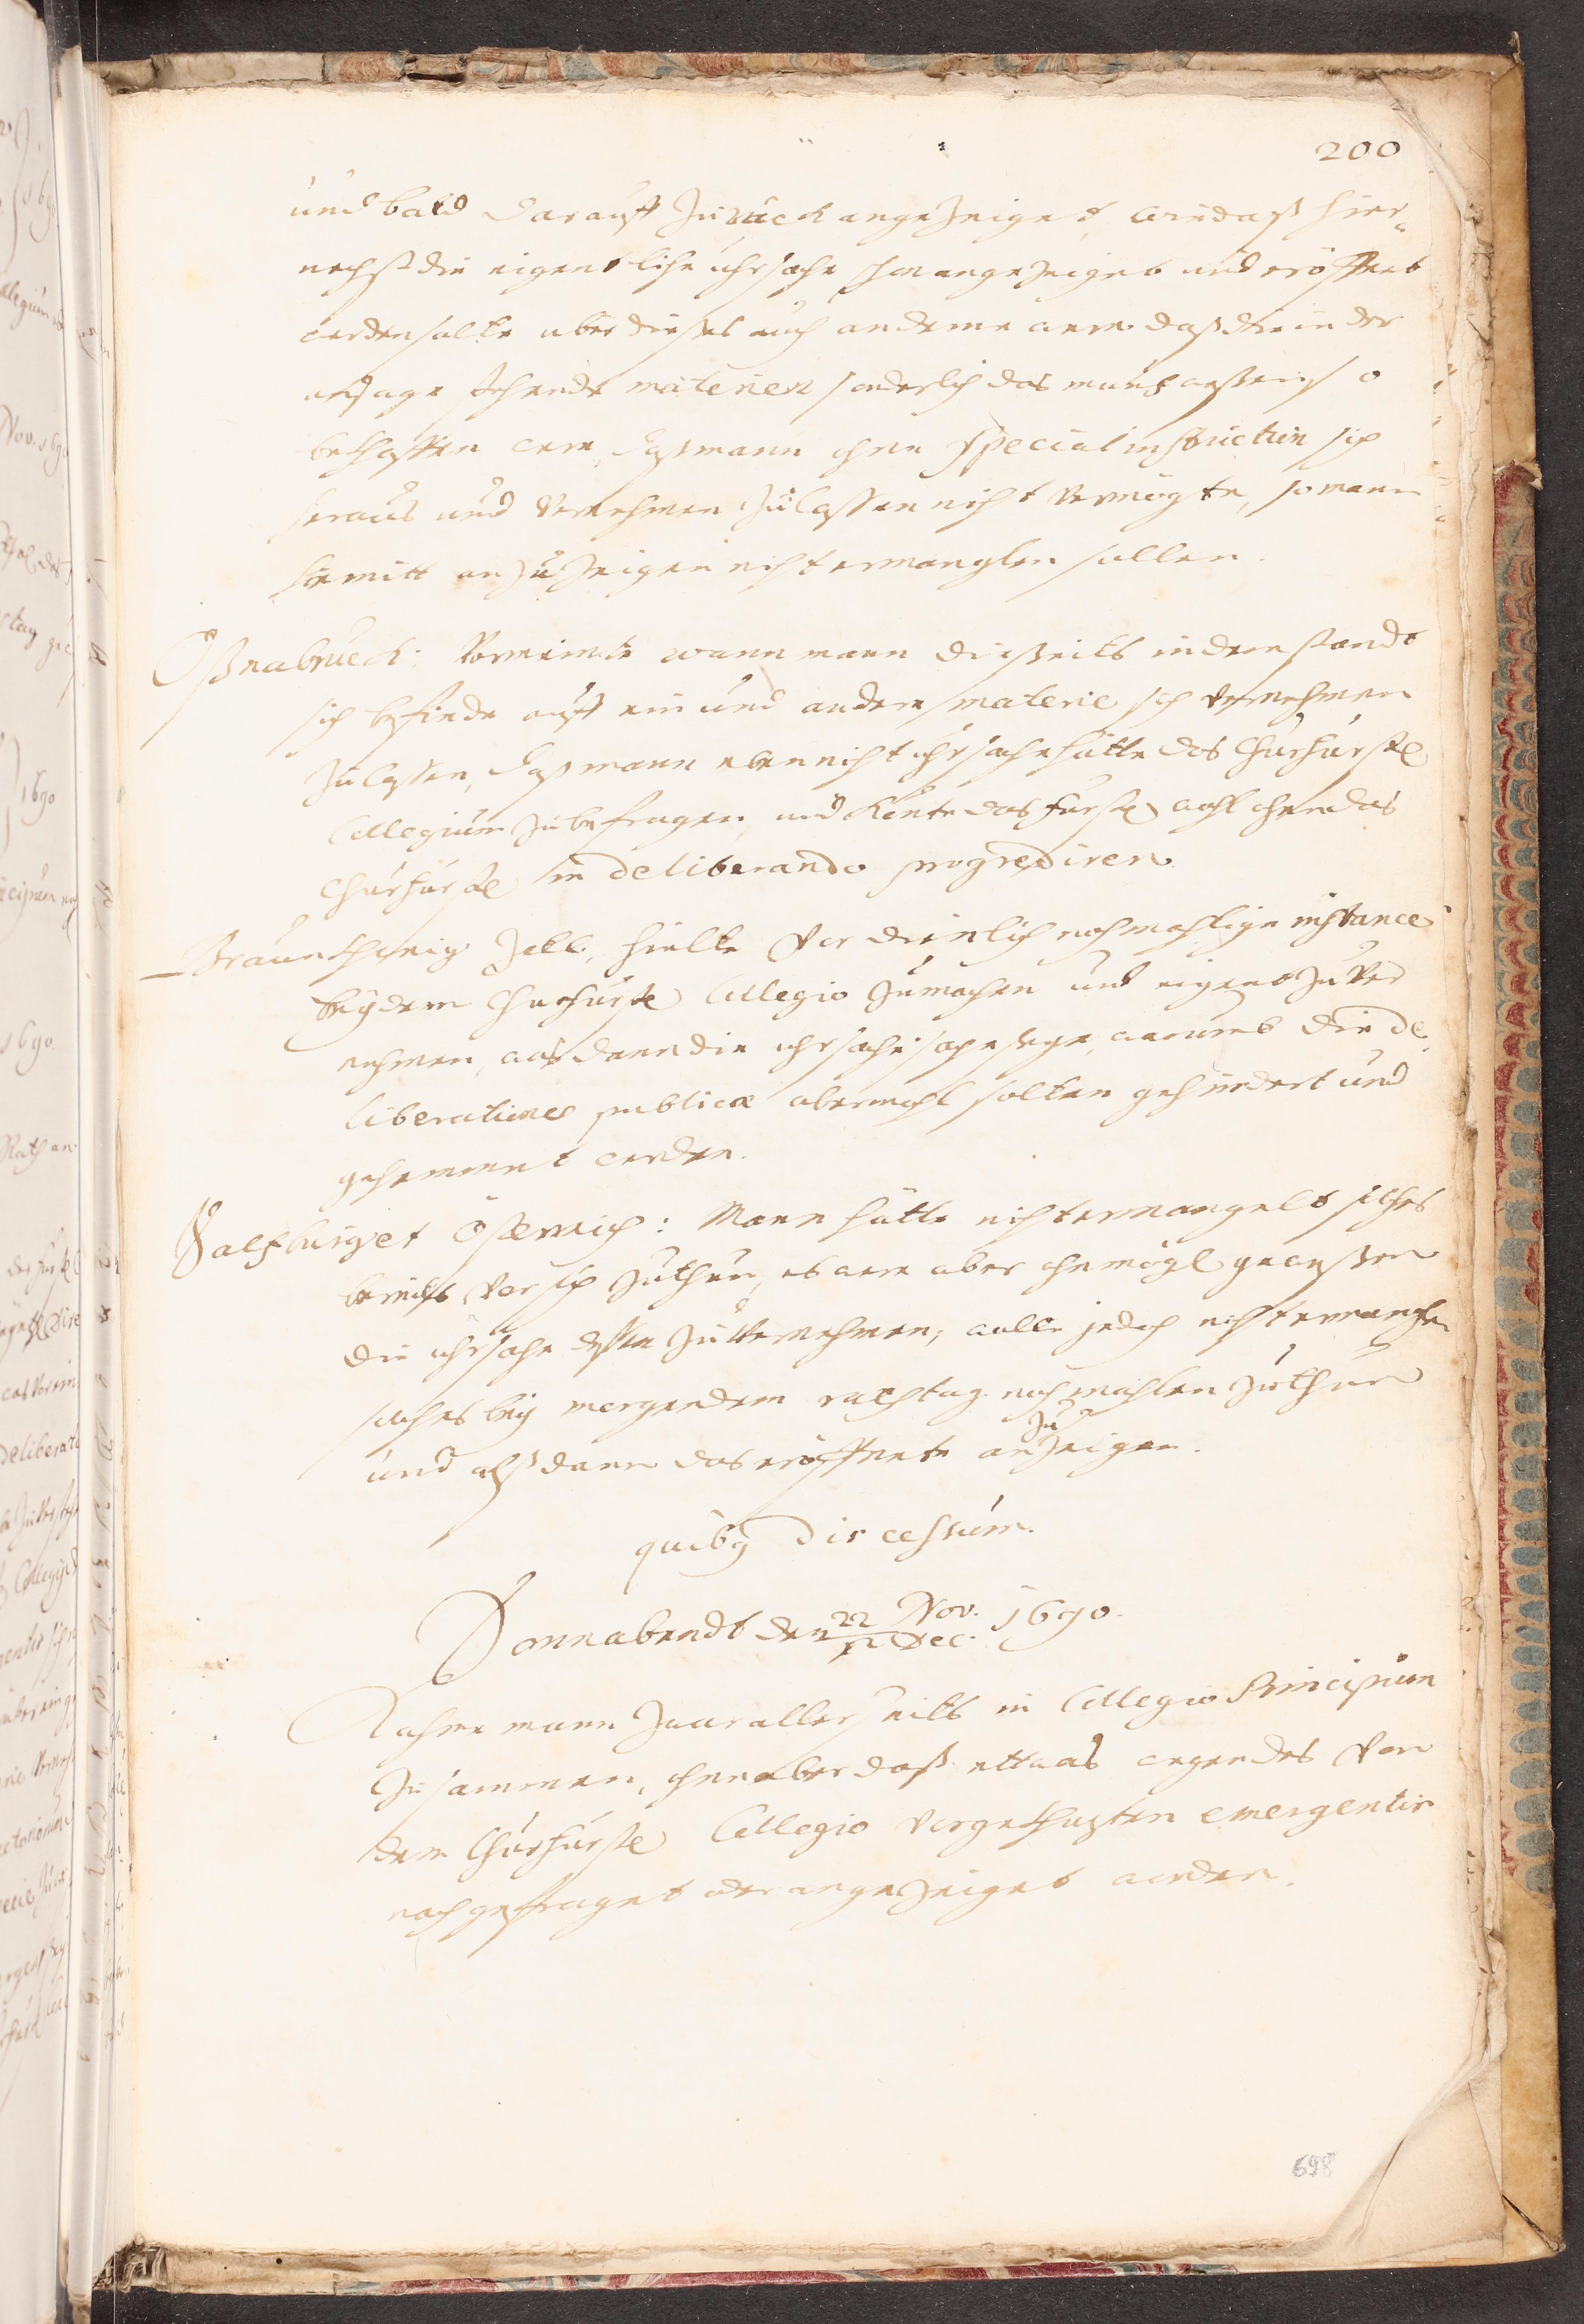 200
und bald darauff zurück angezeiget, wie daß hier„
nechst die eigentliche uhrsache schon angezeiget und eröffnet
werden solte über dieses auch an deme were daß die in der
ansage stehende materien sonderlich das müntzweßen so
beschaffen were, daß mann ohne special instruction sich
heraus und vernehmen zu lassen nicht vermögte, so mann
hiemitt anzuzeigen nicht ermanglen sollen.
Oßnabrück: Vermeinte wann mann dießeits in dem stande
sich befinde auff ein und andere materie sich vernehmen
zu lassen, daß mann eben nicht uhrsache hätte das Churfürstl
Collegium zu befragen, und könte das fürstl wohl ohne das
Churfürstl in deliberando progrediren
Braunschweig Zell, hielte vor dienlich nochmahlige instance
bey dem Churfürstl Collegio zu machen und eigent zu ver
nehmen, was dann die uhrsache seye, warumb die de
liberationes publicæ abermahl solten gehindert und
gehemmet werden.
Saltzburg et Österreich: Mann hätte nicht ermangelt solches
bereits vor sich zu thun, es were aber ohnmögl geweßen
die uhrsache deßen zu vernehmen; wolle jedoch nicht ermanglen
solches bey morgendem rathstag nochmahlen zu thun
und alß dann das eröffnete anzuzeigen.
quibg discessum.
Sonnabendt den 22 Nov. / 2 Dec. 1690.
Kahme mann zwar allerseits in Collegio Principum
zusammen, ohne aber daß ettwas wegen des von
dem Churfürstl Collegio vorgeschützten emergentis
nachgefraget oder angezeiget worden.
698